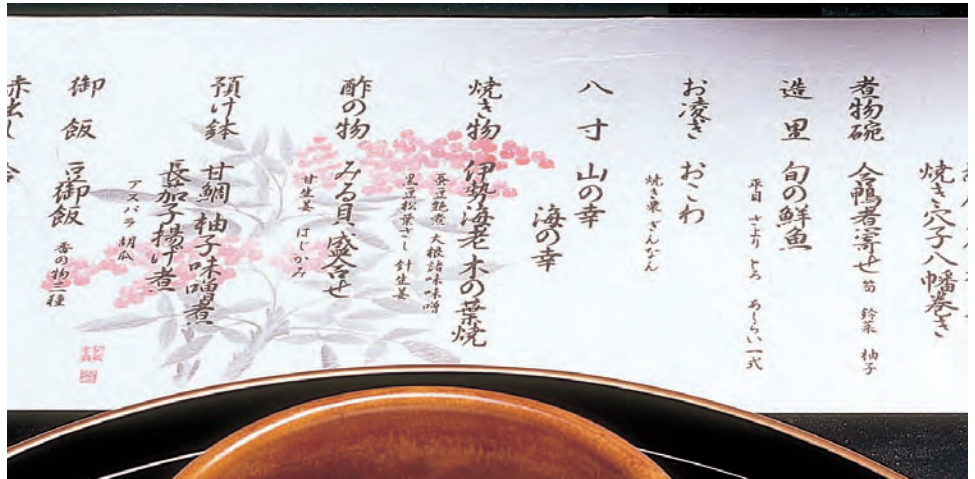 焼き穴子八幡巻き
煮物碗 合鴨煮寄せ 筍 鈴菜 柚子
造里 旬の鮮魚
平目 さより とろ あしらい一式
お凌ぎ おこわ
焼き栗 ぎんなん
八寸 山の幸
海の幸
焼き物 伊勢海老 木の葉焼
蚕豆艶煮 大根諸味味噌
黒豆松葉ざし 針生姜
酢の物 みる貝、盛合せ
甘生姜 はじかみ
預け鉢 甘鯛 柚子味噌煮
長茄子揚げ煮
アスパラ 胡瓜
御飯 豆御飯 香の物二種
赤出し